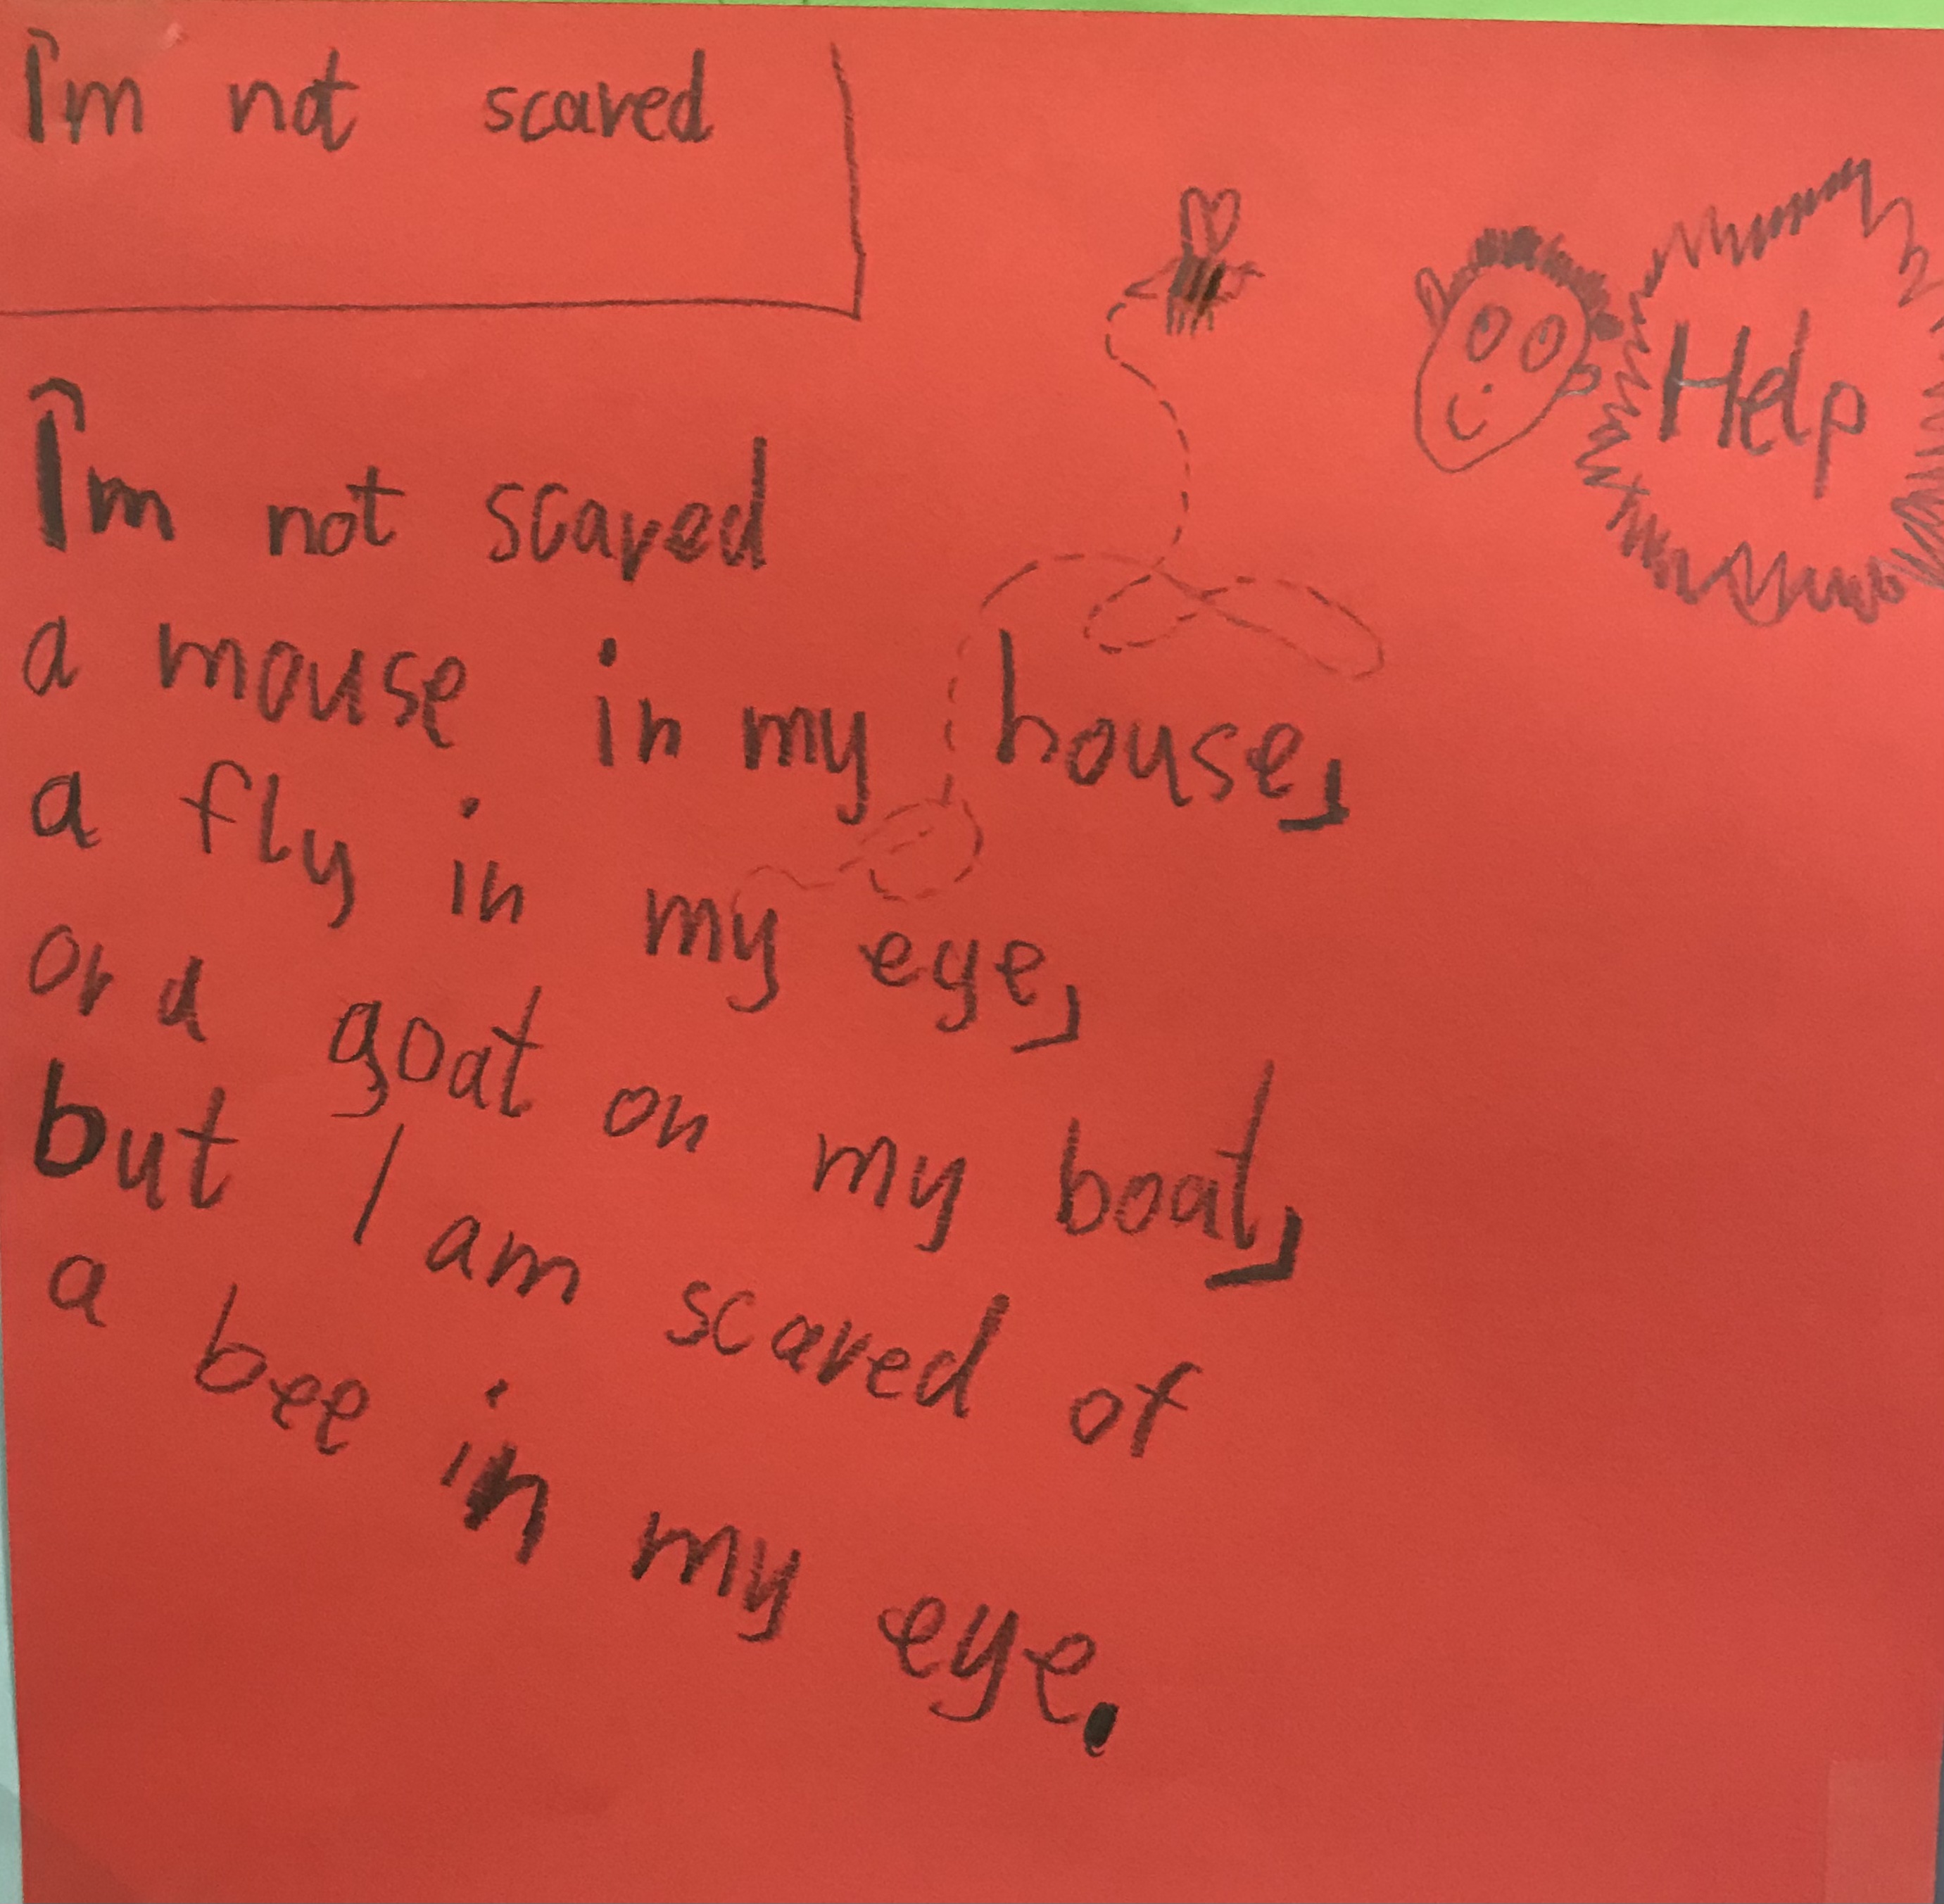 I'm not scared
Help
I'm not scared
a mouse in my house,
a fly in my eye,
or a goat on my boat,
but I am scared of
a bee in my eye.